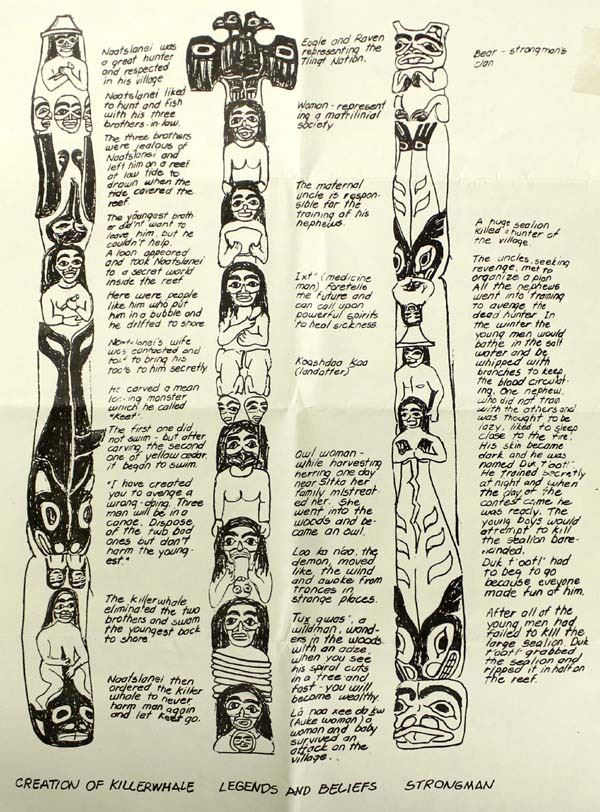 Naatslanei was
a great hunter
and respected
in his village
Naatslanei liked
to hunt and fish
with his three
brothers-in-law.
The three brothers
were jealous of
Naatslanei and
left him on a reef
at low tide to
drown when the
tide covered the
reef.
The youngest broth-
er didn't want to
leave him, but he
couldn't help.
A loon appeared
and took Naatslanei
to a secret world
inside the reef
Here were people
like him who put
him in a bubble and
he drifted to shore
Naatslanei's wife
was contacted and
told to bring his
tools to him secretly
He carved a mean
looking monster
which he called
"Keet".
The first one did
not swim - but after
carving the second
one of yellow cedar
it began to swim.
"I have created
you to avenge a
wrong-doing. Three
men will be in a
canoe. Dispose
of the two bad
ones but don't
harm the young-
est."
The killerwhale
eliminated the two
brothers and swam
the youngest back
to shore.
Naatslanei then
ordered the killer
whale to never
harm man again
and let Keet go.
CREATION OF KILLERWHALE
Eagle and Raven
representing the
Tlingt Nation.
Woman - represent
ing a matrilinial
society
The maternal
uncle is respon-
sible for the
training of his
nephews.
Ixt' (medicine
man) foretells
the future and
can call upon
powerful spirits
to heal sickness.
Koashdaa Kaa
(landotter)
Owl woman -
while harvesting
herring one day
near Sitka her
family mistreat-
ed her. She
went into the
woods and be-
came an owl.
the
demon, moved
like, the wind
and awoke from
trances in
strange places.
a
wildman, wand-
ers in the woods
with an adze,
when you see
his spiral cuts
in a tree and
fast - you will
become wealthy
(Auke woman) a
woman and baby
survived an
attack on the
village..
LEGENDS AND BELIEFS
Bear - strongman's
clan
A huge sealion
killed a hunter of
the village.
The uncles, seeking
revenge, met to
organize a plan
All the nephews
went into training
to avenge the
dead hunter In
the winter the
young men would
bathe in the salt
water and be
whipped with
branches to keep
the blood circulat-
ing. One nephew,
who did not train
with the others and
was thought to be
lazy, liked to sleep
close to the fire.
His skin became
dark and he was
named Duk t'ootl'.
He trained secretly
at night and when
the day of the
contest came he
was ready. The
young boys would
attempt to kill
the sealion bare-
handed.
Duk t'ootl' had
to beg to go
because, everyone
made fun of him.
After all of the
young men had
failed to kill the
large sealion, Duk
t'ootl' grabbed
the sealion and
ripped it in half on
the reef.
STRONGMAN